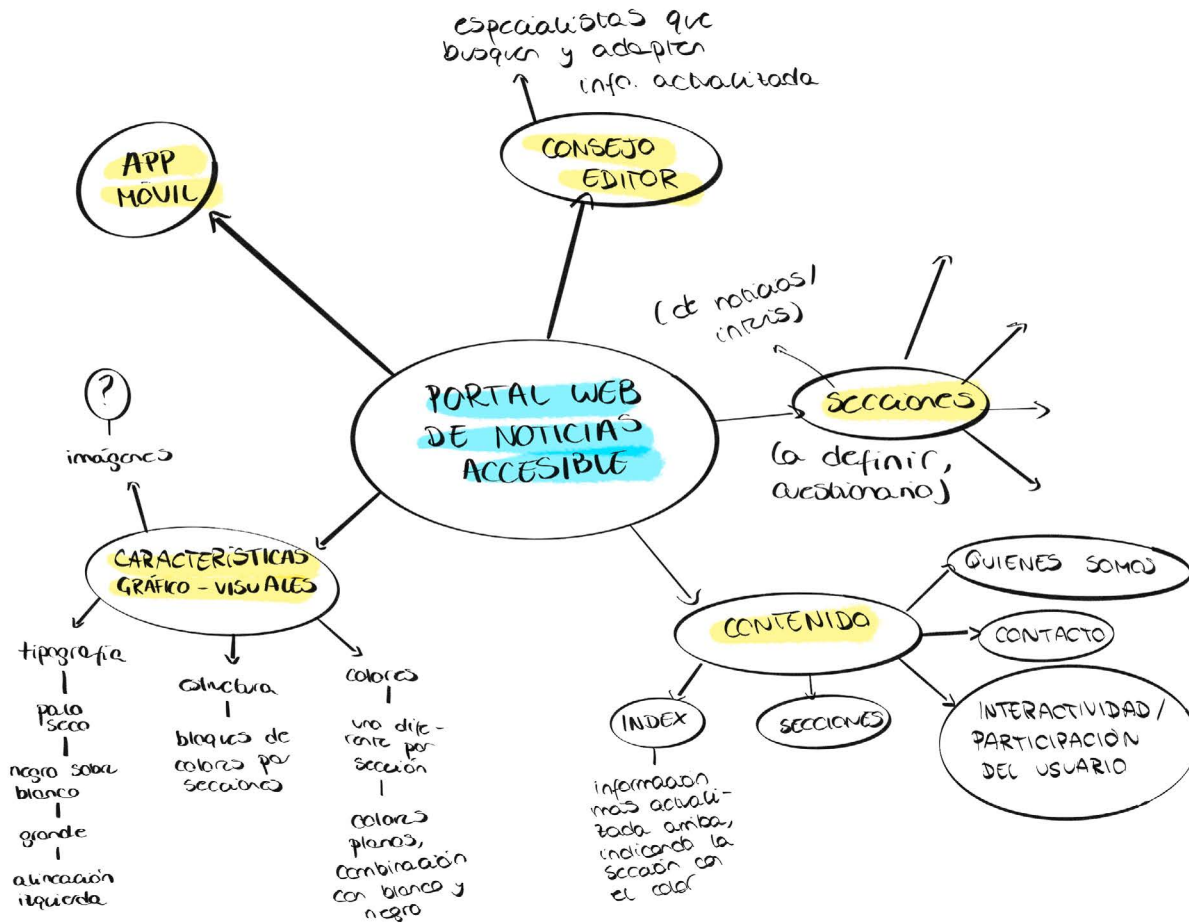 especialistas que
busquen y adapten
info. actualizada
CONSEJO
EDITOR
APP
MÓVIL
(de noticias/
interés)
SECCIONES
(a definir,
cuestionario)
PORTAL WEB
DE NOTICIAS
ACCESIBLE
?
imágenes
CARACTERÍSTICAS
GRÁFICO - VISUALES
tipografía
palo
seco
negro sobre
blanco
grande
alineación
izquierda
estructura
bloques de
colores por
secciones
colores
uno dife-
rente por
sección
colores
planos,
combinación
con blanco y
negro
CONTENIDO
QUIENES SOMOS
CONTACTO
INTERACTIVIDAD/
PARTICIPACIÓN
DEL USUARIO
SECCIONES
INDEX
información
más actuali-
zada arriba,
indicando la
sección con
el color